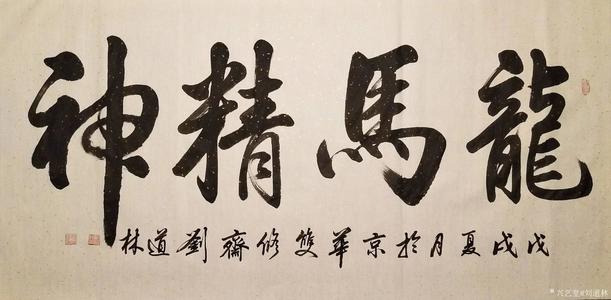 龍馬精神
戊戌夏月於京華雙修齋劉道林
兴艺堂#刘道林